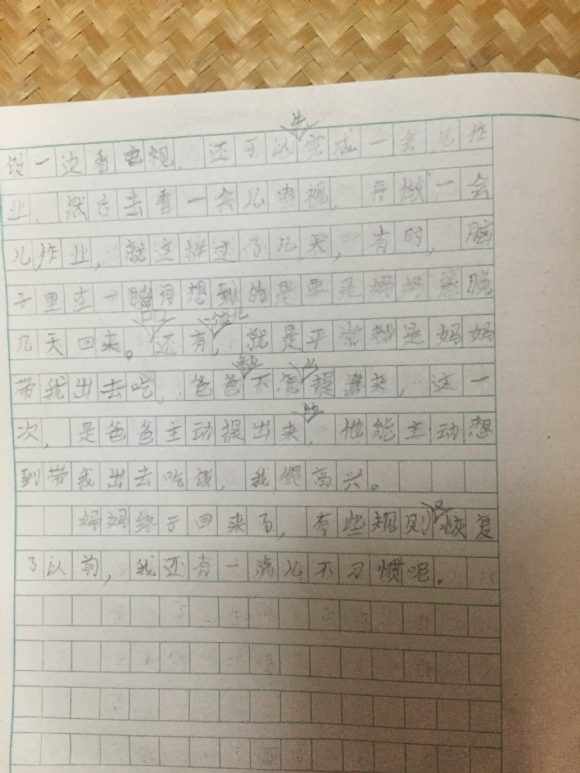 饭一边看电视,还可以先完成一会儿作
业,然后去看一会儿电视,再做一会
儿作业,就这样过了几天,有时,脑
子里在一瞬间想到的是要是妈妈晚
几天回来。还有,就是平常都是妈妈
带我出去吃,爸爸不怎么提出来,这一
次,是爸爸主动提出来,他能主动想
到带我出去吃饭,我很高兴。
妈妈终于回来了,有些规则又恢复
了以前,我还有一点儿不习惯呢。